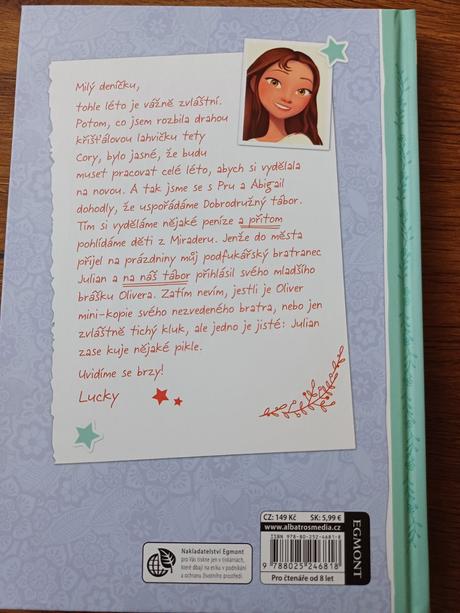 Milý deníčku,
tohle léto je vážně zvláštní.
Potom, co jsem rozbila drahou
křišťálovou lahvičku tety
Cory, bylo jasné, že budu
muset pracovat celé léto, abych si vydělala
na novou. A tak jsme se s Pru a Abigail
dohodly, že uspořádáme Dobrodružný tábor.
Tím si vyděláme nějaké peníze a přitom
pohlídáme děti z Miraderu. Jenže do města
přijel na prázdniny můj podfukářský bratranec
Julian a na náš tábor přihlásil svého mladšího
brášku Olivera. Zatím nevím, jestli je Oliver
mini-kopie svého nezvedeného bratra, nebo jen
zvláštně tichý kluk, ale jedno je jisté: Julian
zase kuje nějaké pikle.
Uvidíme se brzy!
Lucky
Nakladatelství Egmont
pro Vás tiskne jen v tiskárnách,
které dbají na etiku v podnikání
a ochranu životního prostředí.
CZ: 149 Kč SK: 5,99 €
www.albatrosmedia.cz
ISBN 978-80-252-4681-8
9 788025 246818
Pro čtenáře od 8 let
EGMONT